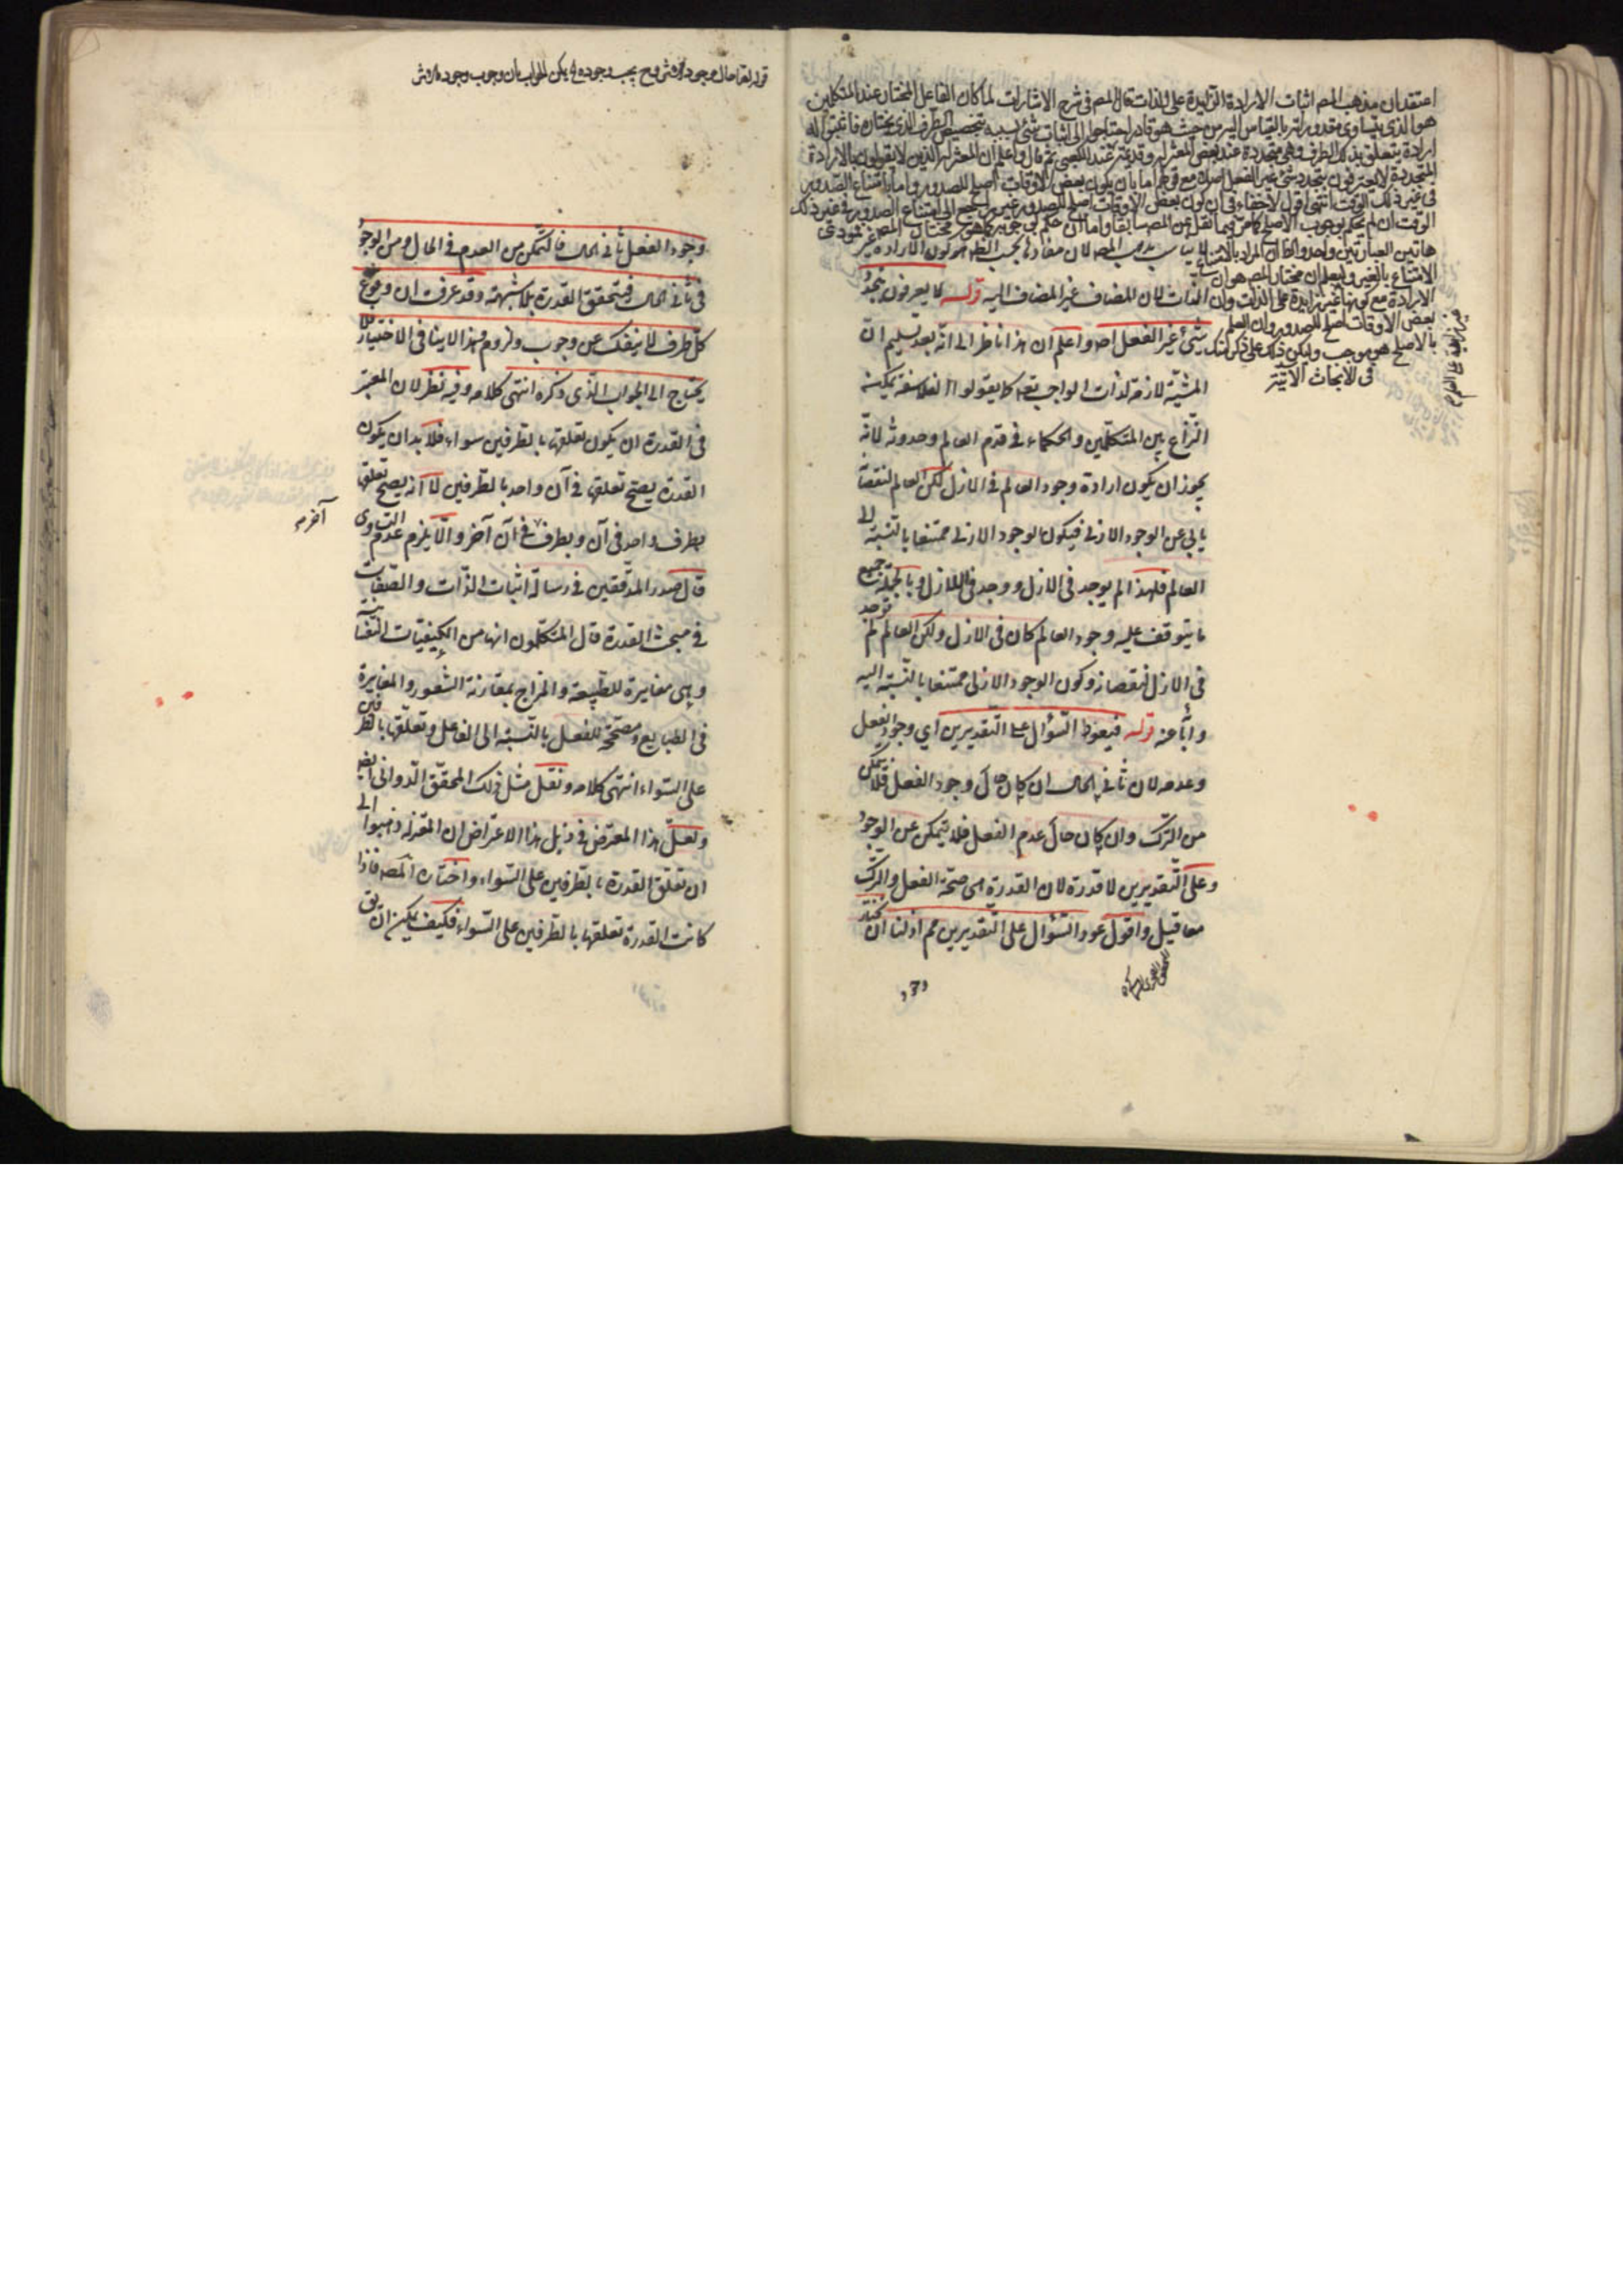 اعتقد ان مذهب المصم اثبات الارادة الزايدة على الذات قال المصم في شرح الاشارات لما كان الفاعل المختار عند المتكلمين
هو الذي يتساوى مقدوراته بالقياس اليه من حيث هو قادر احتاجوا الى اثبات شئ بسببه يتخصص الطرف الذي يختاره فاثبتوا له
ارادة يتعلق بذلك الطرف وهي متجددة عند بعض المعتزلة وقديمة عند البعض ثم قال واعلم ان المعتزلة الذين لا يقولون بالارادة
المتجددة لا يعترفون بتجدد شئ غير الفعل اصلا مع قولهم اما بان يكون بعض الاوقات اصلح للصدور واما بامتناع الصدور
في غير ذلك الوقت انتهى اقول لا خفاء في ان كون بعض الاوقات اصلح للصدور غير راجع الى امتناع الصدور في غير ذلك
الوقت ان لم يحكم بوجوب الاصلح كما مر فيما نقل من المصم سابقا واما ان حكم بوجوبه كما هو مختار المصم فمودى
هاتين العبارتين واحد والظ ان المراد بالامتناع
الامتناع بالغير وليعلم ان مختار المصم هو ان
الارادة مع كونها غير زايدة على الذات وان
بعض الاوقات اصلح للصدور وان العلم
بالاصلح هو موجب وليكن ذلك على ذكر لك
في الابحاث الاتية
المصم لان مفاده بحسب الظ هو كون الارادة غير
الذات لان المضاف غير المضاف اليه قوله لا يعرفون بتجدد
شئ غير الفعل اه واعلم ان هذا ناظر الى انه بعد تسليم ان
المشية لازمة لذات الواجب تعه كما يقولوا الفلاسفة يمكنه
النزاع بين المتكلمين والحكماء في قدم العالم وحدوثه لانه
يجوز ان يكون ارادة وجود العالم في الازل لكن العالم لنقصا
يابى عن الوجود الازلي فيكون الوجود الازلي ممتنعا بالنسبة الى
العالم فلهذا لم يوجد في الازل ووجد في اللاازل وبالجملة جميع
ما يتوقف عليه وجود العالم كان في الازل ولكن العالم لم يوجد
في الازل لنقصانه وكون الوجود الازلي ممتنعا بالنسبة اليه
قوله فيعود السؤال على التقديرين اي وجود الفعل
وعدمه لان ثاني الحال ان كان حال وجود الفعل فلا يتمكن
من الترك وان كان حال عدم الفعل فلا يتمكن عن الوجود
وعلى التقديرين لا قدرة لان القدرة هى صحة الفعل والترك
معا قيل واقول عود السؤال على التقديرين مم اذ لنا ان نختار
وجود الفعل ثاني الحال فالتمكن من العدم في الحال ومن الوجود
في ثاني الحال فيتحقق القدرة بلا شبهة وقد عرفت ان وقوع
كل طرف لا ينفك عن وجوب ولزوم وهذا لا ينافى الاختيار فلا
يحتاج الى الجواب الذي ذكره انتهى كلامه وفيه نظر لان المعتبر
في القدرة ان يكون تعلقها بالطرفين سواء فلا بد ان يكون
القدرة يصح تعلقها في آن واحد بالطرفين لا انه يصح تعلقها
بطرف واحد في آن وبطرف في آن آخر والا يلزم عدم التساوى
آخر
قال صدر المدققين في رسالة اثبات الذات والصفات
في مبحث القدرة قال المتكلمون انها من الكيفيات النفسانية
وهى مغايرة للطبيعة والمزاج بمقارنة الشعور والمغايرة
في الطبايع ومصححة للفعل بالنسبة الى الفاعل وتعلقها بالطرفين
على السواء انتهى كلامه ونقل مثل ذلك المحقق الدواني ايضا
ولعل هذا المعترض في ذيل هذا الاعتراض ان المعتزلة ذهبوا الى
ان تعلق القدرة بالطرفين على السواء واختاره المصه فاذا
كانت القدرة تعلقها بالطرفين على السواء فكيف يمكن ان يق